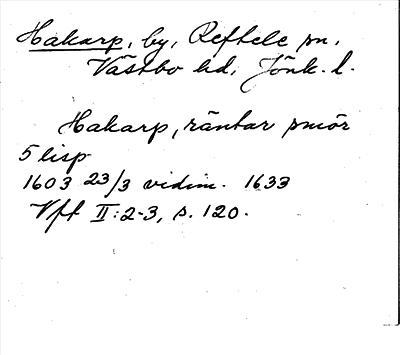 Hakarp, by, Reftele sn,
Västbo hd, Jönk. l.
Hakarp, räntar smör
5 lisp
1603 23/3 vidim. 1633
Vft II:2-3, s. 120.